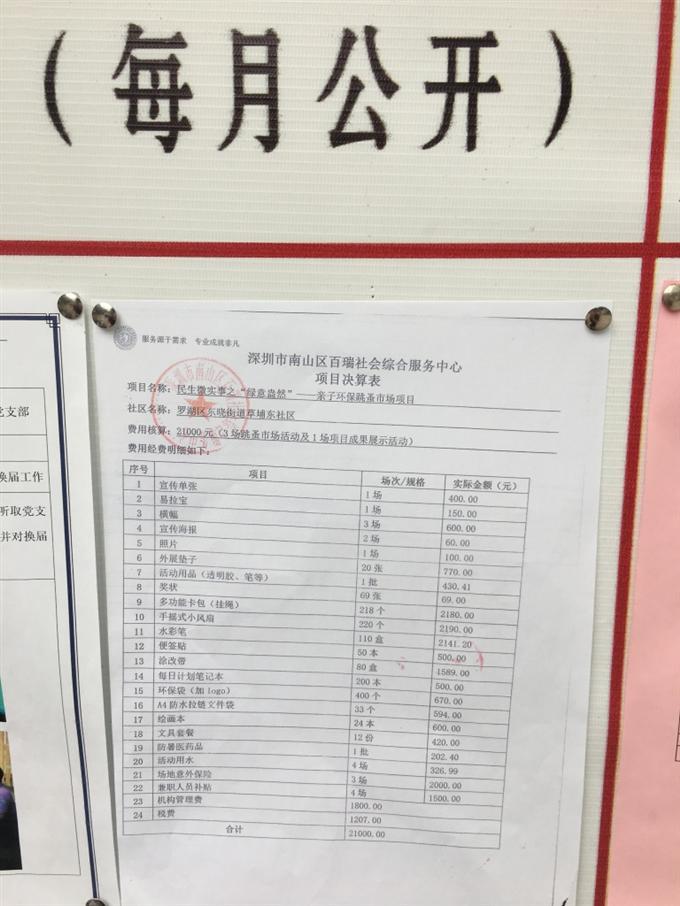 （每月公开）
服务源于需求 专业成就非凡
深圳市南山区百瑞社会综合服务中心
项目决算表
项目名称：民生微实事之“绿意盎然”——亲子环保跳蚤市场项目
社区名称：罗湖区东晓街道草埔东社区
费用核算：21000元（3场跳蚤市场活动及1场项目成果展示活动）
费用经费明细如下：
序号 项目 场次/规格 实际金额（元）
1 宣传单张 1场 400.00
2 易拉宝 1场 150.00
3 横幅 3场 600.00
4 宣传海报 2场 60.00
5 照片 1场 100.00
6 外展垫子 20张 770.00
7 活动用品（透明胶、笔等） 1批 430.41
8 奖状 69张 69.00
9 多功能卡包（挂绳） 218个 2180.00
10 手摇式小风扇 220个 2190.00
11 水彩笔 110盒 2141.20
12 便签贴 50本 500.00
13 涂改带 80盒 1589.00
14 每日计划笔记本 200本 500.00
15 环保袋（加logo） 400个 670.00
16 A4防水拉链文件袋 33个 594.00
17 绘画本 24本 600.00
18 文具套餐 12份 420.00
19 防暑医药品 1批 202.40
20 活动用水 4场 326.99
21 场地意外保险 3场 2000.00
22 兼职人员补贴 4场 1500.00
23 机构管理费 1800.00
24 税费 1207.00
合计 21000.00
党支部
换届工作
听取党支
并对换届